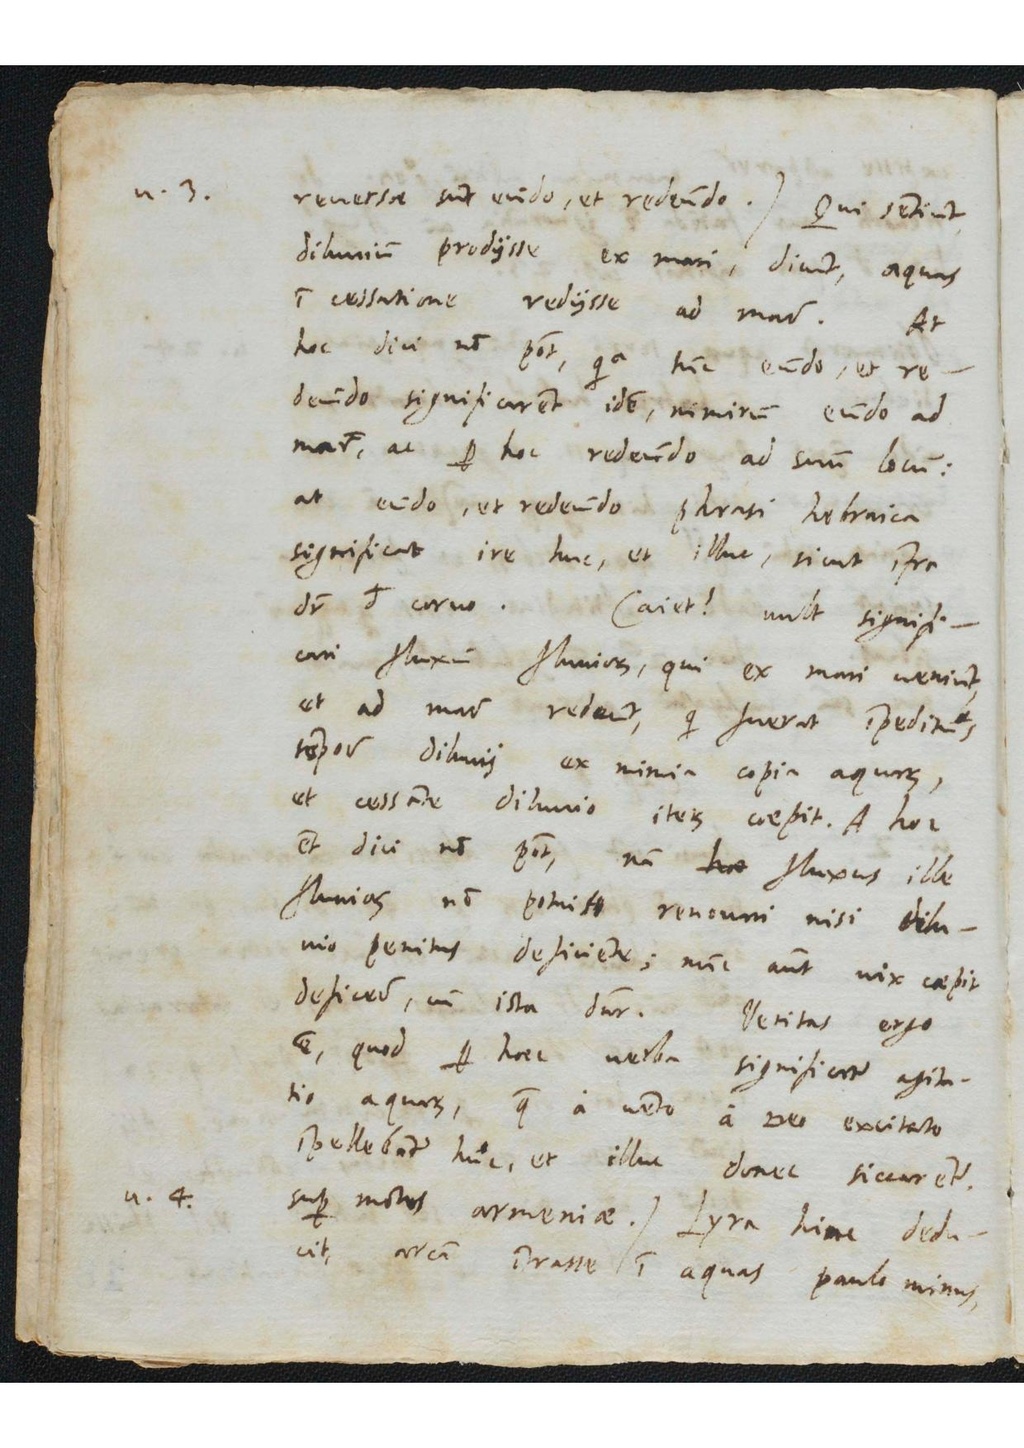 u. 3. reuersae sūt eūdo, et redeūdo.) Qui sētiūt,
diluuiū prodijsse ex mari, dicūt, aquas
ī cessatione redijsse ad marē. At
hoc dici nō pōt, qª tūc eūdo, et re-
deūdo significarēt idē, nimirū eūdo ad
marē, ac ꝑ hoc redeūdo ad suū locū:
at eūdo, et redeūdo phrasi hebraica
significat ire huc, et illuc, sicut īfra
dr̄ d̄ coruo. Caiet! uult signifi-
cari fluxū fluuioꝝ, qui ex mari ueniūt,
et ad marē redeūt, q fuerat īpeditus
tēporē diluuij ex nimia copia aquaꝝ,
et cessāte diluuio iteꝝ coepit. A hoc
ēt dici nō pōt, nā fluxus ille
fluuioꝝ nō potuit renouari nisi dilu-
uio penitus deficiēte; nūc aūt uix coepit
deficerē, cū ista dn̄r. Veritas ergo
ē, quod ꝑ haec uerba significatr̄ agita-
tio aquaꝝ, q̄ à uēto à Deo excitato
īpellebātr̄ huc, et illuc donec siccarētr̄.
u. 4. suꝑ mōtes armeniae.) Lyra hinc dedu-
cit, arcā ītrasse ī aquas paulo minus,